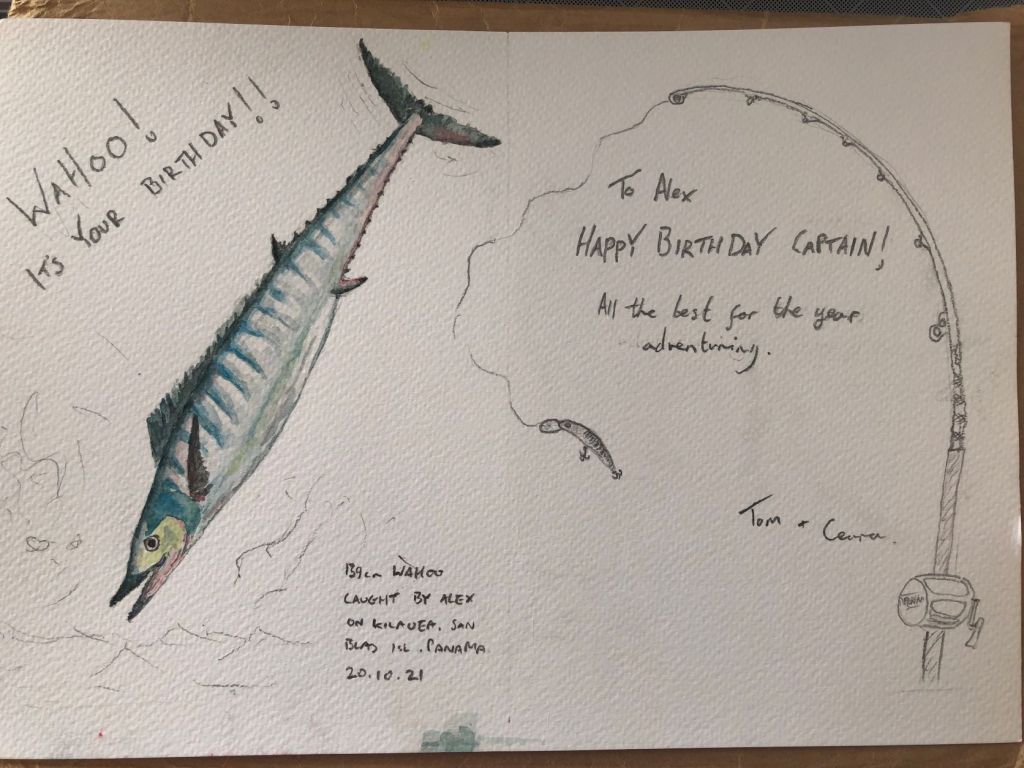 WAHOO!
IT'S YOUR BIRTHDAY!!
139cm WAHOO
CAUGHT BY ALEX
ON KILAUEA, SAN
BLAS ISL. PANAMA
20.10.21
To Alex
HAPPY BIRTHDAY CAPTAIN!
All the best for the year
adventuring.
Tom +
PENN